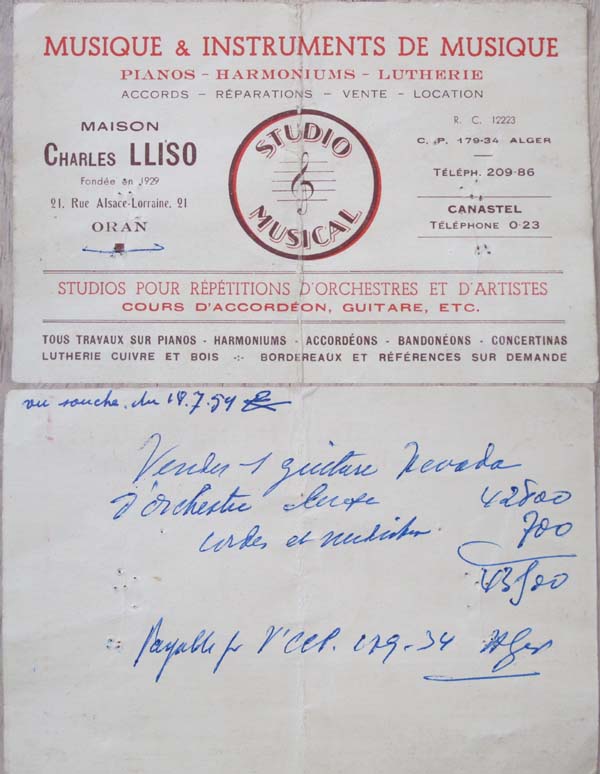 MUSIQUE & INSTRUMENTS DE MUSIQUE
PIANOS - HARMONIUMS - LUTHERIE
ACCORDS - RÉPARATIONS - VENTE - LOCATION
MAISON
CHARLES LLISO
Fondée en 1929
21, Rue Alsace-Lorraine, 21
ORAN
STUDIO
MUSICAL
R. C. 12223
C. P. 179-34 ALGER
TÉLÉPH. 209-86
CANASTEL
TÉLÉPHONE 0-23
STUDIOS POUR RÉPÉTITIONS D'ORCHESTRES ET D'ARTISTES
COURS D'ACCORDÉON, GUITARE, ETC.
TOUS TRAVAUX SUR PIANOS - HARMONIUMS - ACCORDÉONS - BANDONÉONS - CONCERTINAS
LUTHERIE CUIVRE ET BOIS -:- BORDEREAUX ET RÉFÉRENCES SUR DEMANDE
vu souche du 18.7.59
Vendes 1 guitare Nevada
d'orchestre 42800
cordes et 700
43500
Payable CCP. 179-34 Alger